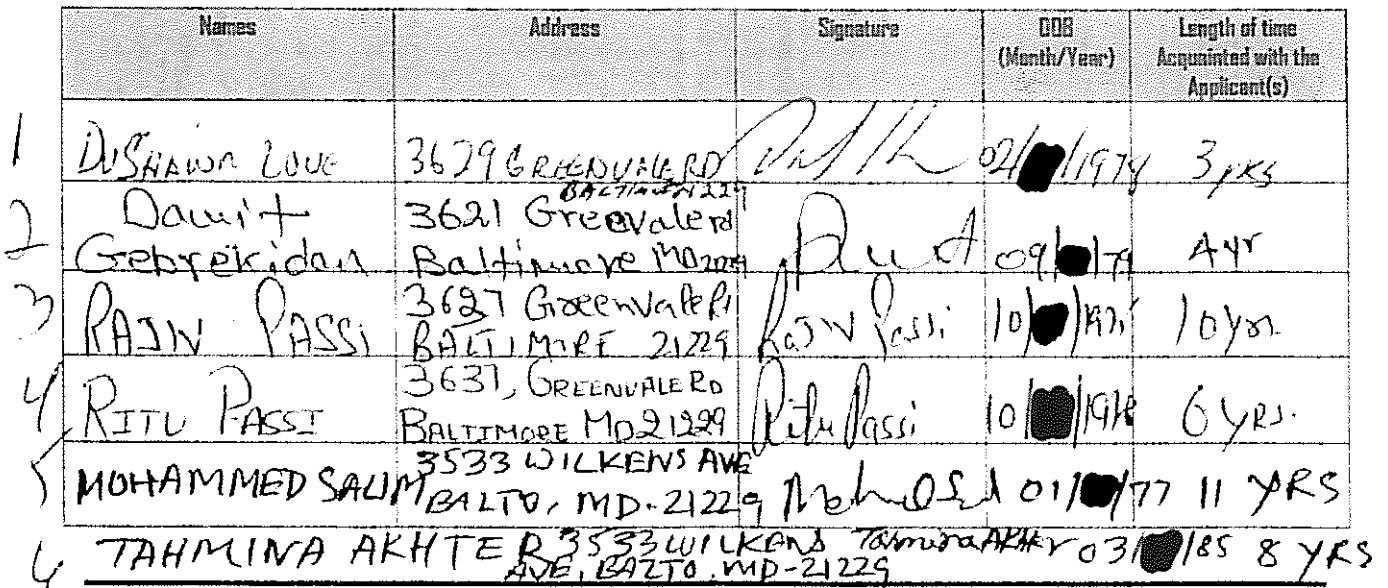 Names Address Signature DOB (Month/Year) Length of time Acquainted with the Applicant(s)
1 DuShawn Love 3629 GREENVALE RD BALTIMORE 21229 02/ /1974 3 yrs
2 Dawit Gebrekidan 3621 Greevale rd Baltimore MD 21229 09/ /79 4 yr
3 RAJIV PASSI 3627 Greenvale Rd BALTIMORE 21229 Rajiv Passi 10/ / 10 yrs.
4 RITU PASSI 3637, GREENVALE RD BALTIMORE MD 21229 Ritu Passi 10/ / 6 YRS.
5 MOHAMMED SALIM 3533 WILKENS AVE BALTO, MD-21229 01/ /77 11 YRS
6 TAHMINA AKHTER 3533 WILKENS AVE, BALTO, MD-21229 Tahmina Akhter 03/ /85 8 YRS